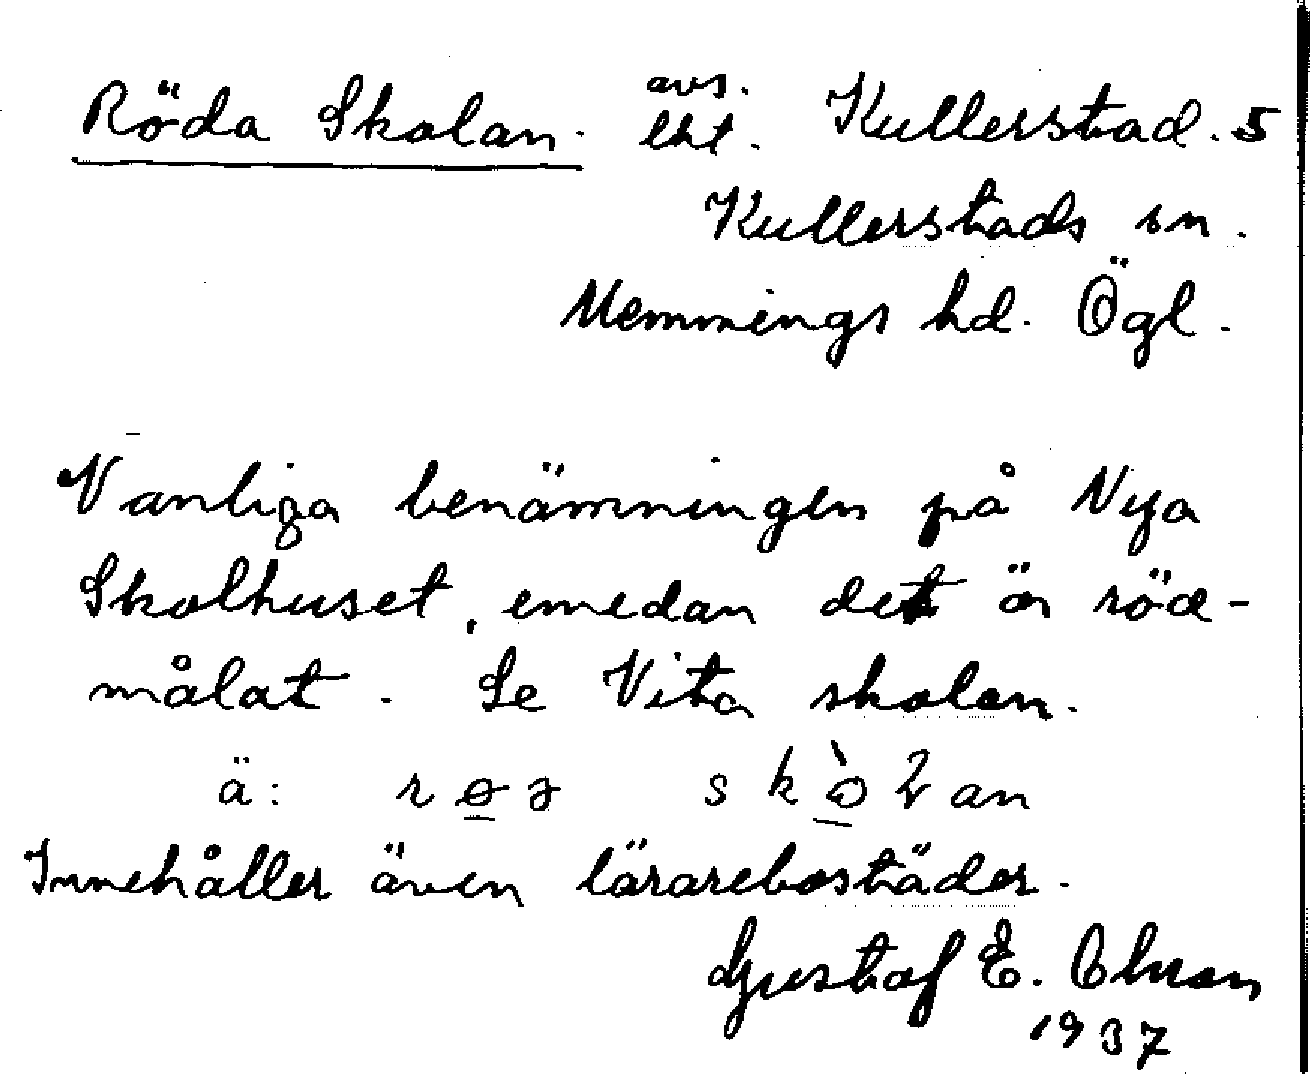 Röda Skolan. avs. lht. Kullerstad. 5
Kullerstads sn.
Memmings hd. Ögl.
Vanliga benämningen på Nya
Skolhuset, emedan det är röd-
målat. Se Vita skolan.
ä:
Innehåller även lärarebostäder.
Gustaf E.
1937